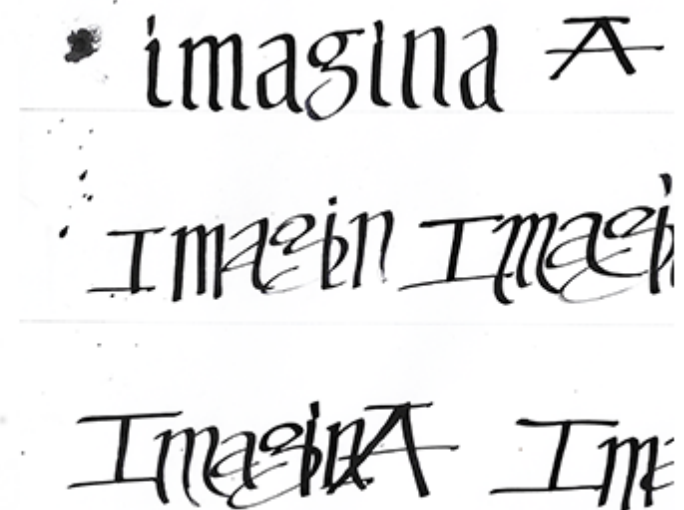 imagina A
Imagin Imagi
ImaginA Im